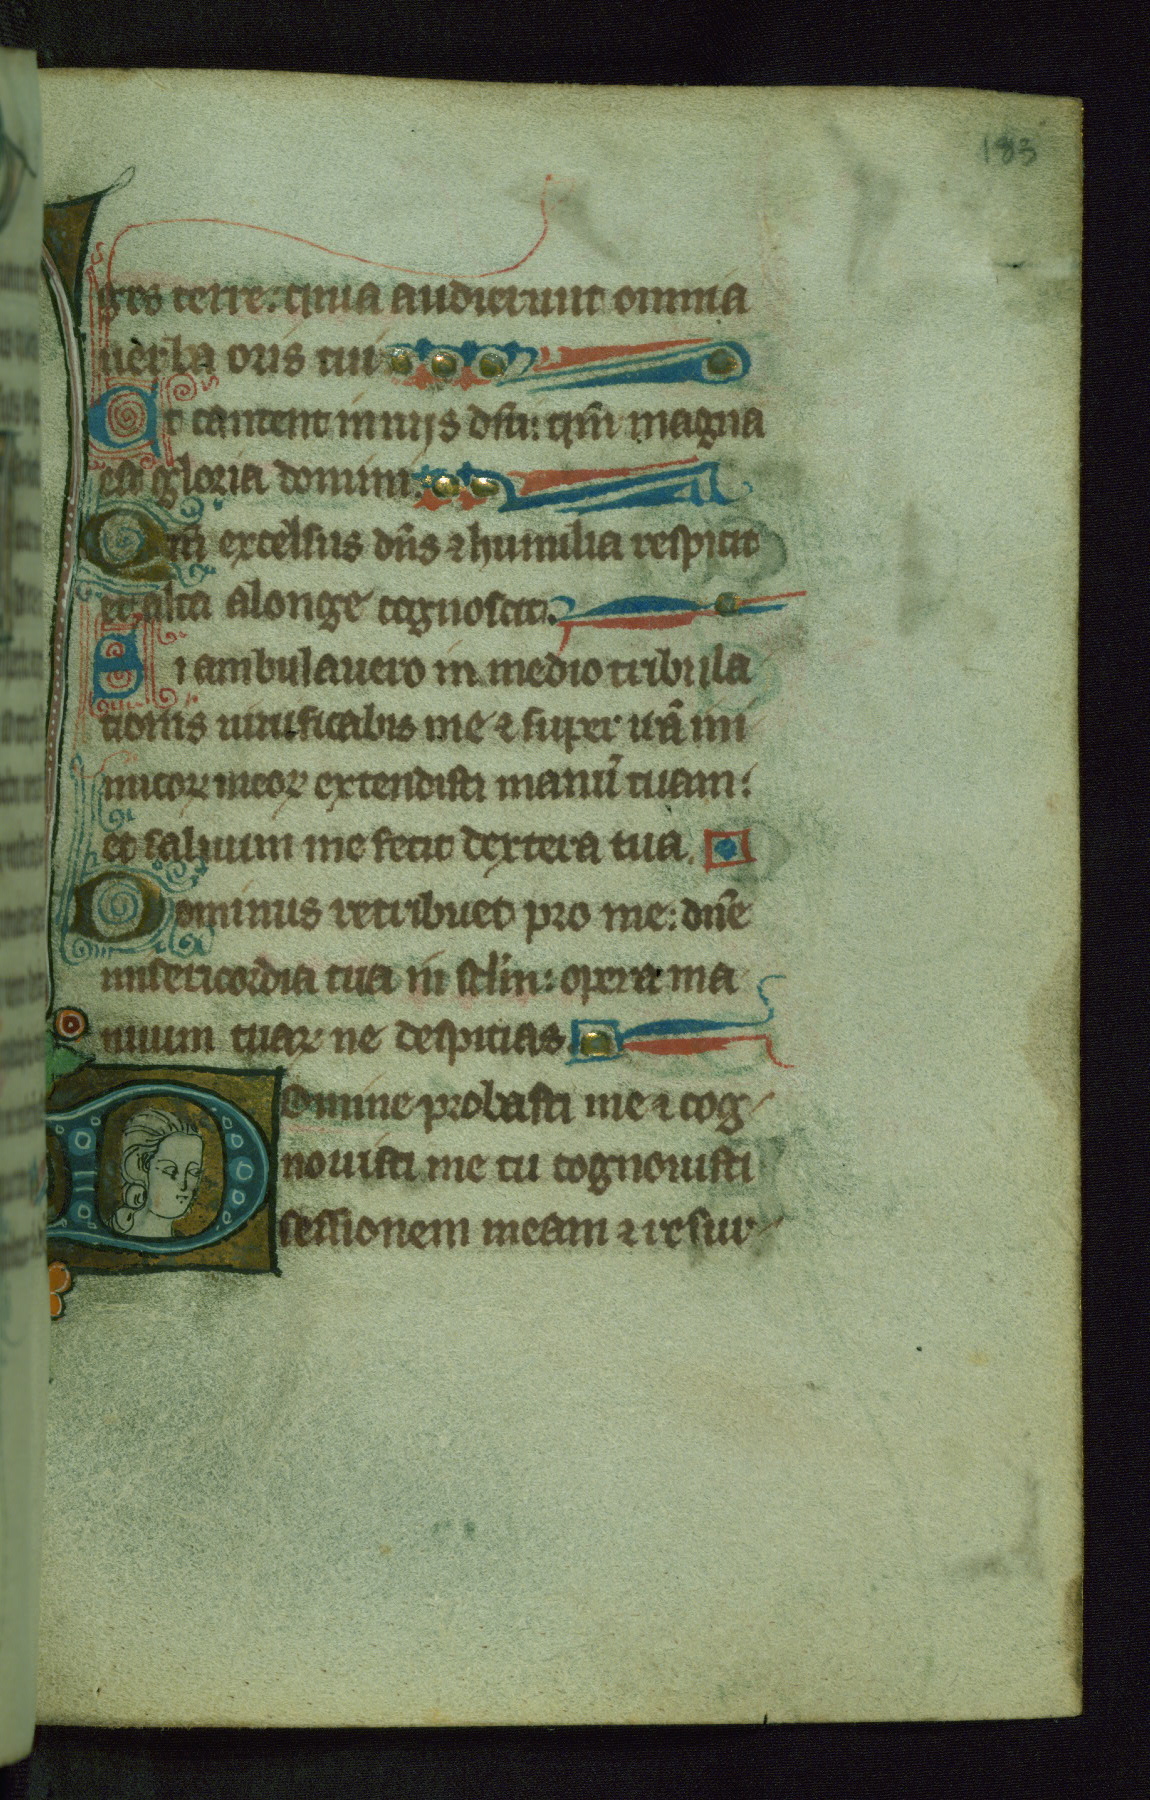 183
ges terre: quia audierunt omnia
uerba oris tui
Et cantent in uijs dñi: qm̄ magna
est gloria domini.
Qm̄ excelsus dñs ⁊ humilia respicit
et alta alonge cognoscit.
Si ambulauero in medio tribula
tionis uiuificabis me ⁊ super irā ini
micoꝝ meoꝝ extendisti manū tuam:
et saluum me fecit dextera tua.
Dominus retribuet pro me: dñe
misericordia tua in sclm̄: opera ma
nuum tuaꝝ ne despicias.
Domine probasti me ⁊ cog
nouisti me tu cognouisti
sessionem meam ⁊ resur